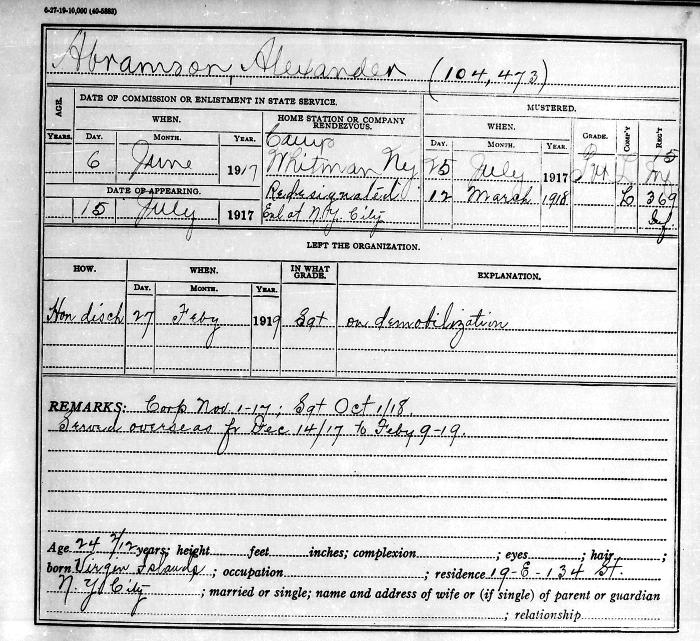 6-27-19-10,000 (40-5883)
Abramson, Alexander (104,473)
AGE. DATE OF COMMISSION OR ENLISTMENT IN STATE SERVICE. HOME STATION OR COMPANY RENDEZVOUS. MUSTERED.
WHEN. WHEN. GRADE. COMP'Y REG'T
YEARS. DAY. MONTH. YEAR. DAY. MONTH. YEAR.
6 June 1917 Camp Whitman Ny 25 July 1917 Pvt L 15 Ny
DATE OF APPEARING. Redesignated 12 March 1918 L 369 Inf.
15 July 1917 Enl at N.Y. City
LEFT THE ORGANIZATION.
HOW. WHEN. IN WHAT GRADE. EXPLANATION.
DAY. MONTH. YEAR.
Hon disch 27 Feby 1919 Sgt on demobilization
REMARKS: Corp Nov. 1-17; Sgt Oct 1/18.
Served overseas fr Dec 14/17 to Feby 9-19.
Age 24 2/12 years; height feet inches; complexion ; eyes ; hair ;
born Virgen Islands ; occupation ; residence 19-E-134 St.
N.Y. City ; married or single; name and address of wife or (if single) of parent or guardian
; relationship